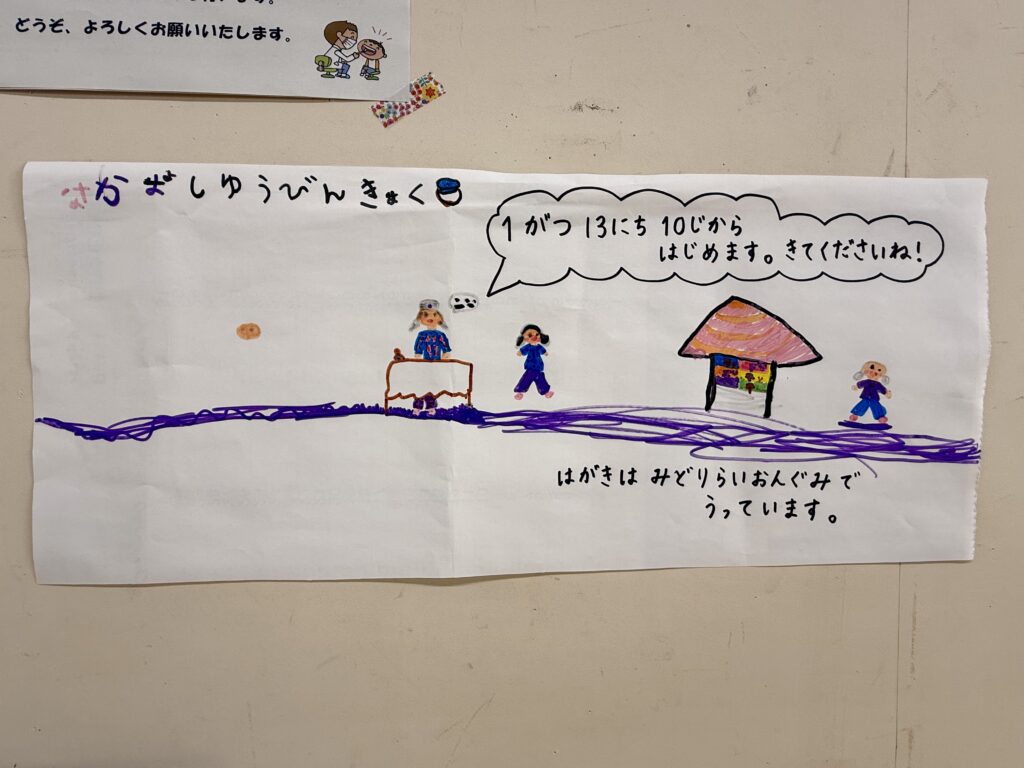 ます。
どうぞ、よろしくお願いいたします。
なかばしゆうびんきょく
1がつ 13にち 10じから
はじめます。きてくださいね!
はがきは みどりらいおんぐみで
うっています。